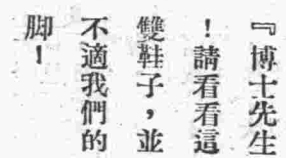 『博士先生
！請看看這
雙鞋子，並
不適我們的
脚！